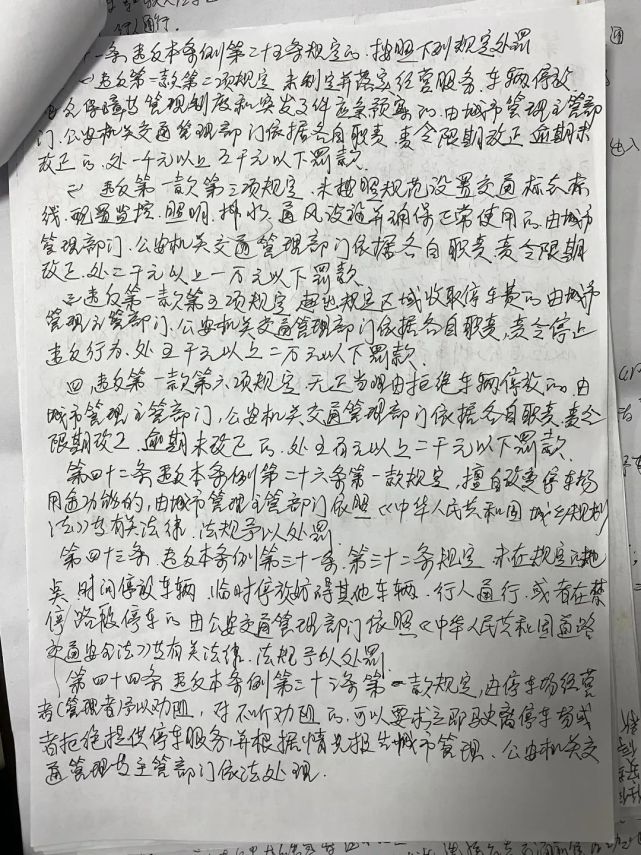 行人通行.
一条 违反本条例第二十五条规定的. 按照下列规定处罚
㈠ 违反第一款第二项规定 未制定并落实经营服务. 车辆停放.
安全保障等管理制度和突发事件应急预案的. 由城市管理主管部
门. 公安机关交通管理部门依据各自职责. 责令限期改正 逾期未
改正的. 处一千元以上五千元以下罚款.
㈡ 违反第一款第三项规定. 未按照规范设置交通标志标
线. 配置监控. 照明. 排水. 通风设施并确保正常使用的. 由城市
管理部门. 公安机关交通管理部门依据各自职责. 责令限期
改正. 处二千元以上一万元以下罚款.
㈢ 违反第一款第五项规定 超出规定区域收取停车费的. 由城市
管理主管部门. 公安机关交通管理部门依据各自职责. 责令停止
违反行为. 处五千元以上二万元以下罚款.
四. 违反第一款第六项规定 无正当理由拒绝车辆停放的. 由
城市管理主管部门, 公安机关交通管理部门依据各自职责. 责令
限期改正. 逾期未改正的. 处五百元以上二千元以下罚款.
第四十二条 违反本条例第二十六条第一款规定, 擅自改变停车场
用途功能的, 由城市管理主管部门依照《中华人民共和国城乡规划
法》等有关法律. 法规予以处罚
第四十三条. 违反本条例第三十一条. 第三十二条规定 未在规定的地
点 时间停放车辆. 临时停放妨碍其他车辆. 行人通行. 或者在禁
停路段停车的 由公安交通管理部门依照《中华人民共和国道路
交通安全法》等有关法律. 法规予以处罚
第四十四条 违反本条例第三十三条第一款规定, 由停车场经营
者(管理者)予以劝阻, 对不听劝阻的, 可以要求立即驶离停车场或
者拒绝提供停车服务, 并根据情况报告城市管理、公安机关交
通管理等主管部门依法处理.